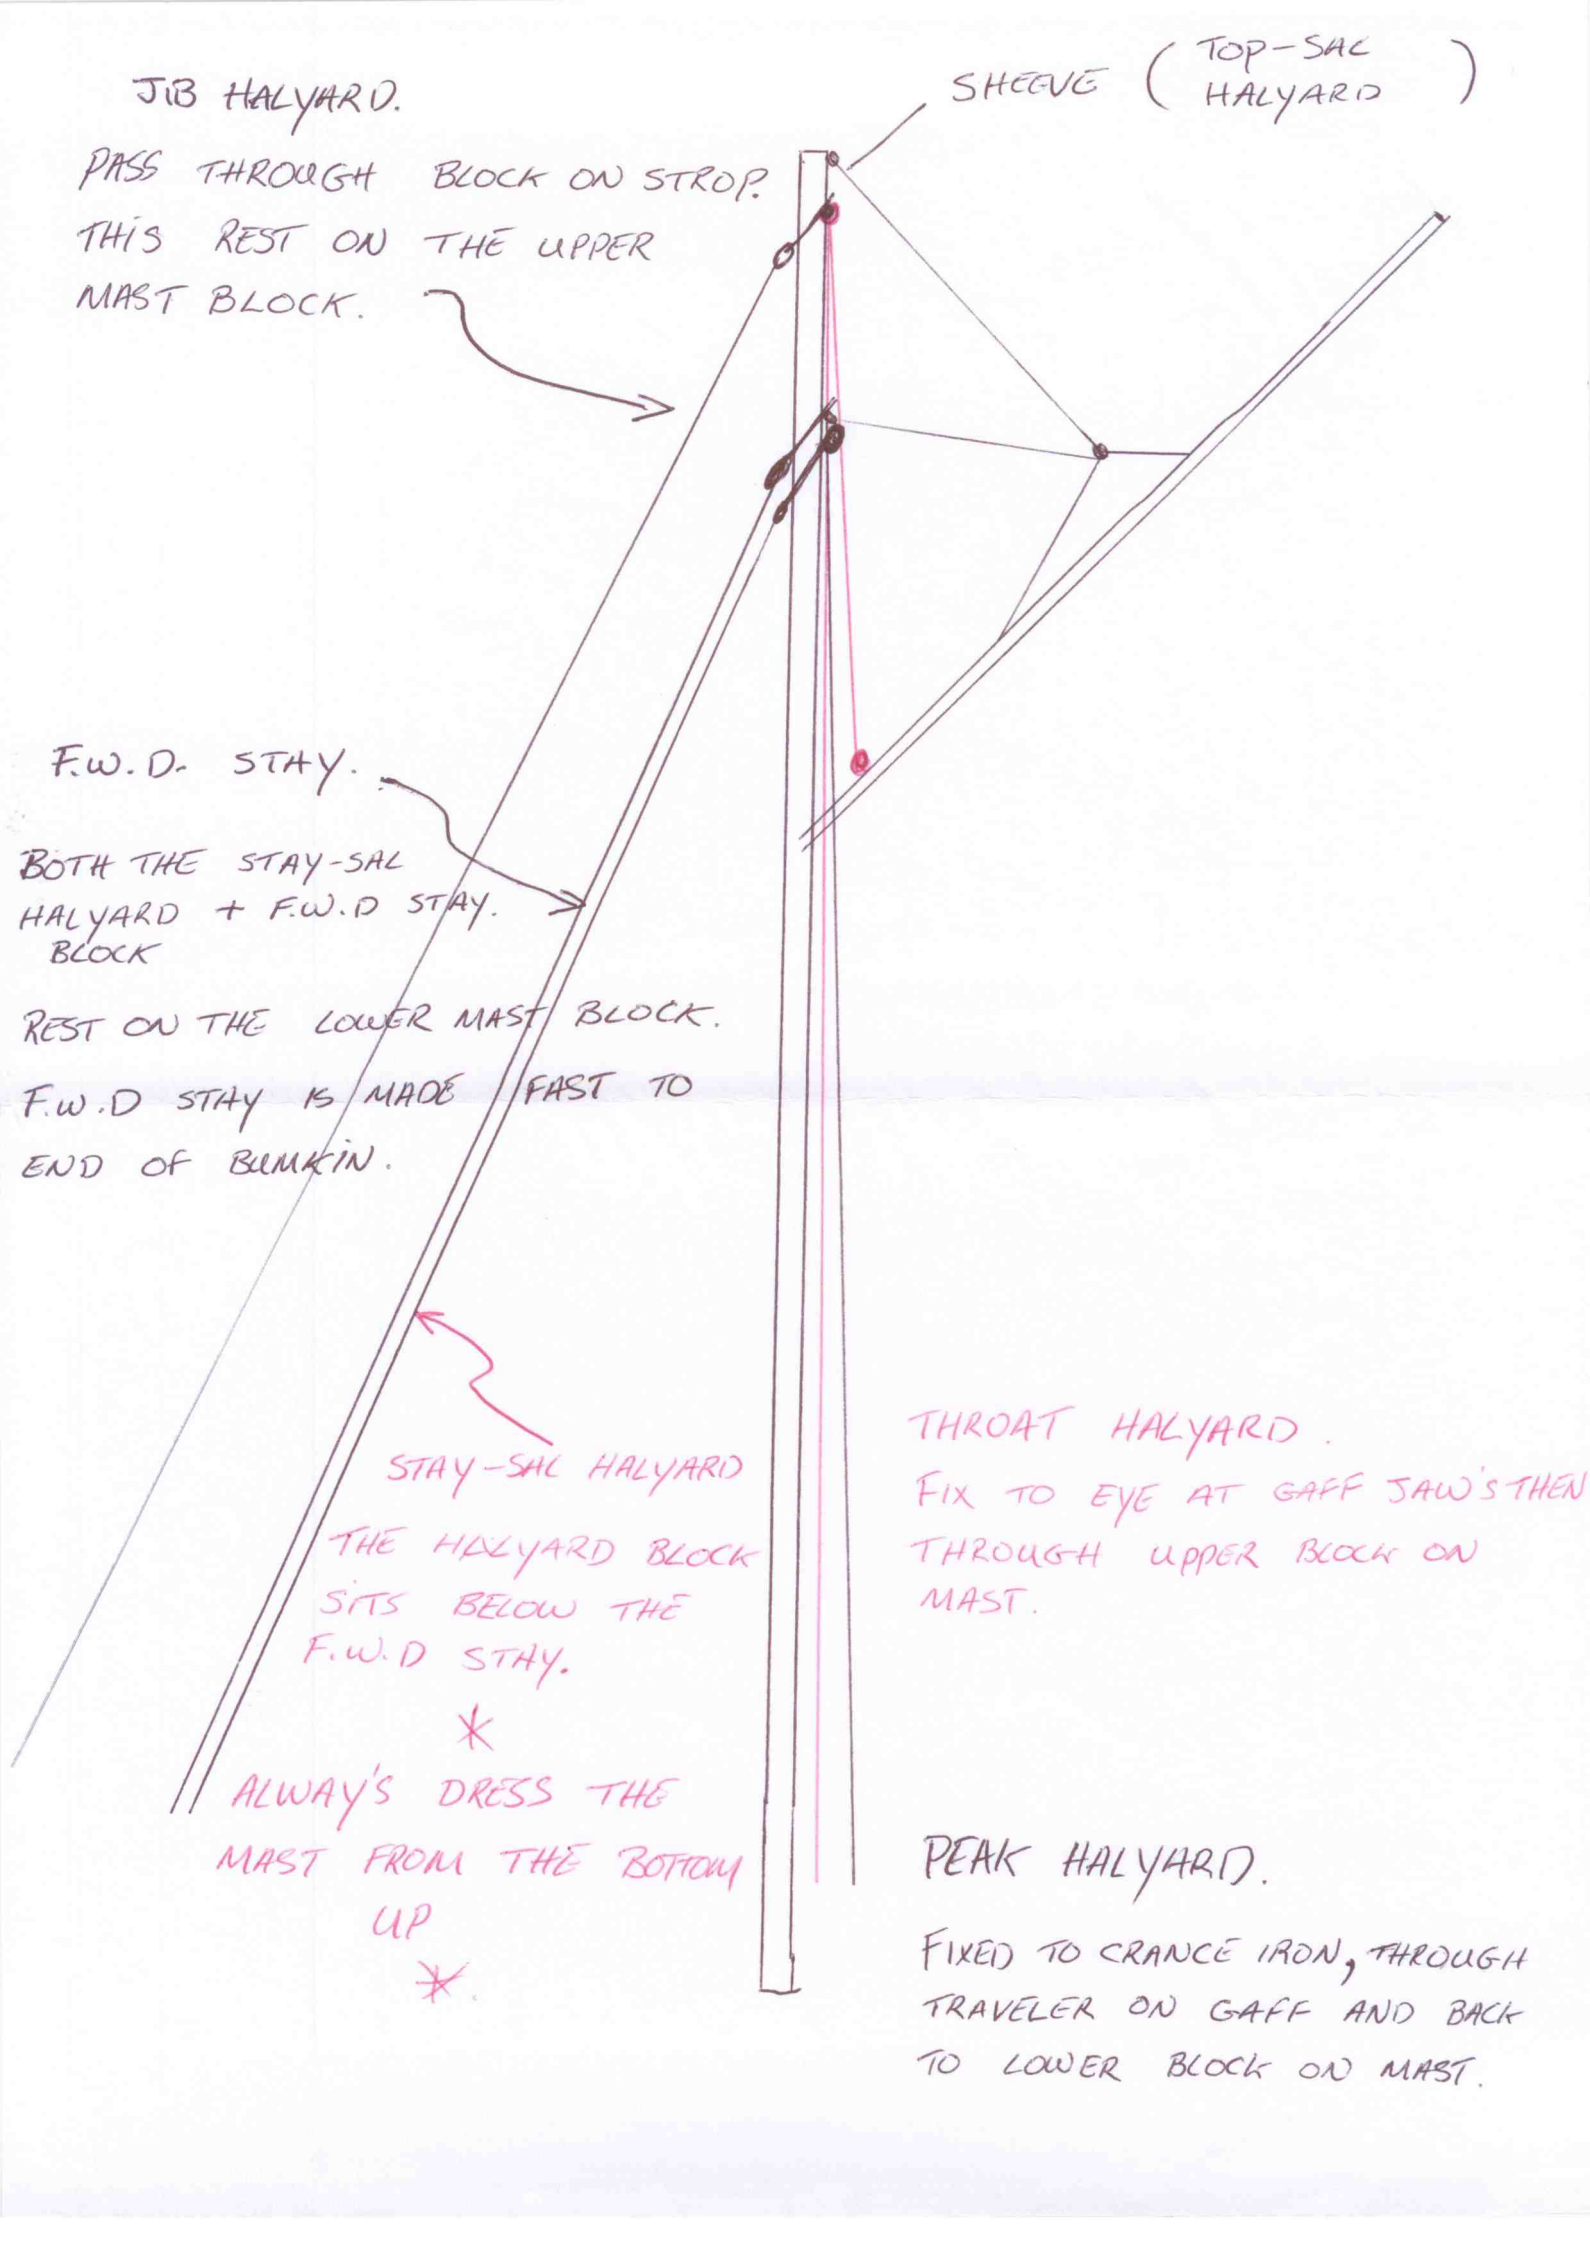 JIB HALYARD.
PASS THROUGH BLOCK ON STROP.
THIS REST ON THE UPPER
MAST BLOCK.
SHEEVE ( TOP-SAL
HALYARD )
F.W.D. STAY.
BOTH THE STAY-SAL
HALYARD + F.W.D STAY.
BLOCK
REST ON THE LOWER MAST BLOCK.
F.W.D STAY IS MADE FAST TO
END OF BUMKIN.
STAY-SAL HALYARD
THE HALYARD BLOCK
SITS BELOW THE
F.W.D STAY.
*
ALWAY'S DRESS THE
MAST FROM THE BOTTOM
UP
*.
THROAT HALYARD.
FIX TO EYE AT GAFF JAW'S THEN
THROUGH UPPER BLOCK ON
MAST.
PEAK HALYARD.
FIXED TO CRANCE IRON, THROUGH
TRAVELER ON GAFF AND BACK
TO LOWER BLOCK ON MAST.